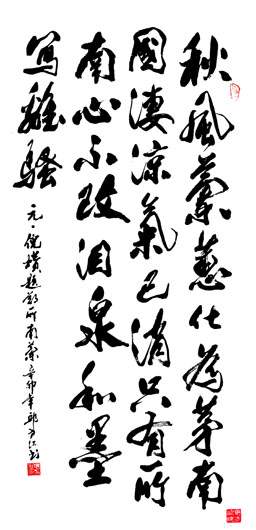 秋風蘭蕙化為茅南
國淒涼氣已消只有所
南心不改泪泉和墨
寫離騷
元·倪瓚題鄭所南蘭辛卯年